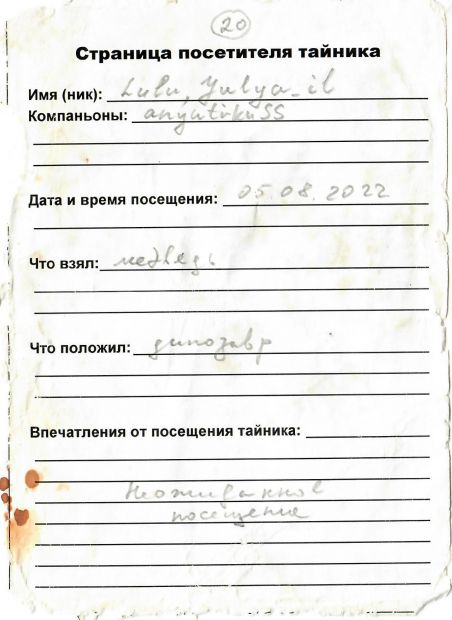 20
Страница посетителя тайника
Имя (ник): Lulu, Yulya_il
Компаньоны: anyutikuSS
Дата и время посещения: 05.08.2022
Что взял: медведь
Что положил: динозавр
Впечатления от посещения тайника:
Неожиданное
посещение